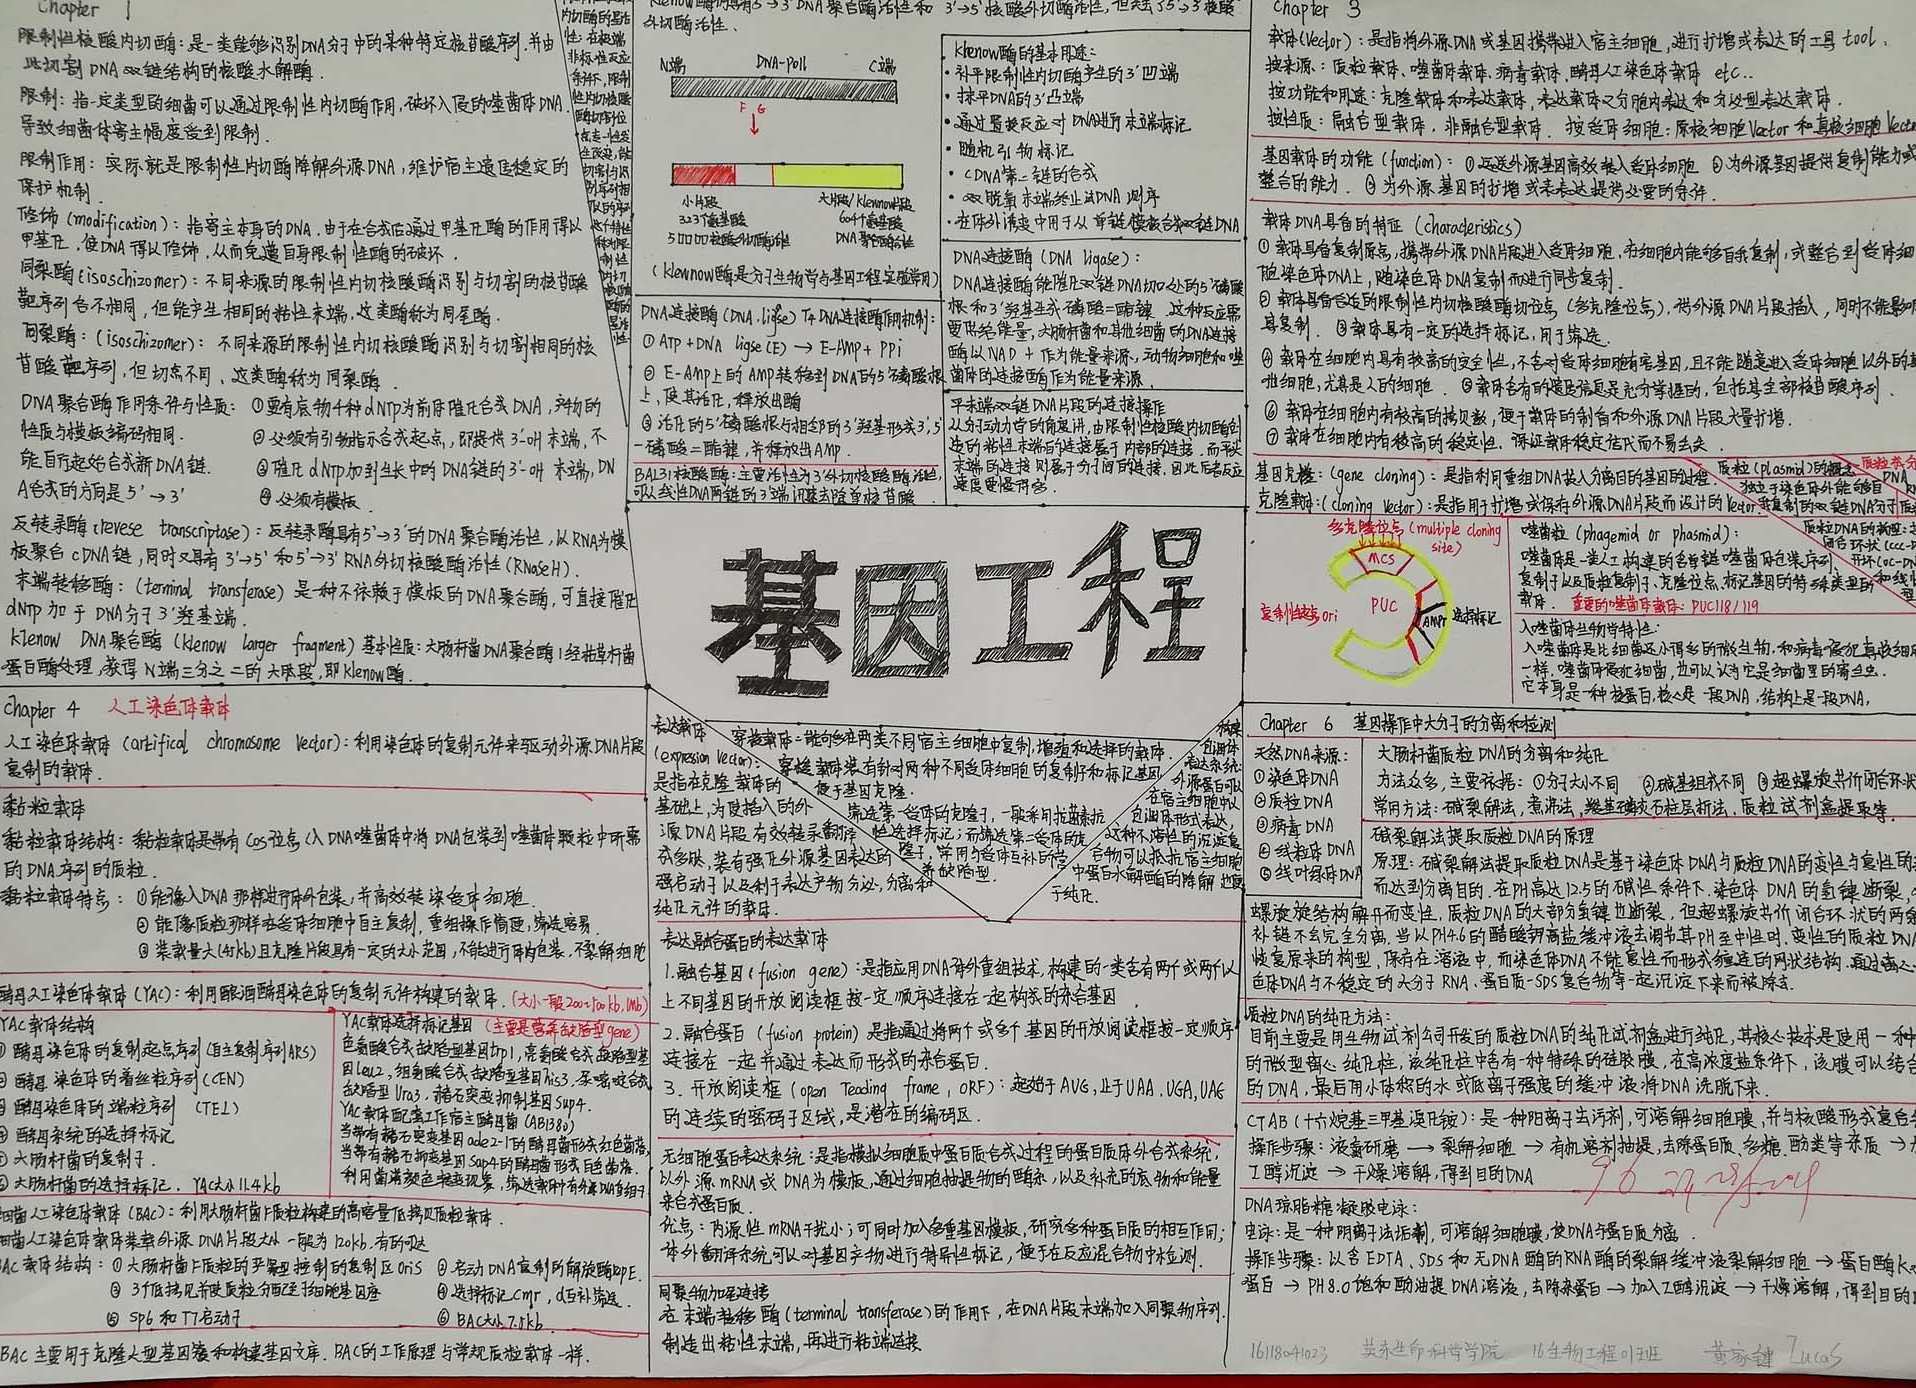 Chapter 1
限制性核酸内切酶：是一类能够识别DNA分子中的某种特定核苷酸序列，并由
此切割DNA双链结构的核酸水解酶．
限制：指一定类型的细菌可以通过限制性内切酶作用，破坏入侵的噬菌体DNA，
导致噬菌体寄主幅度受到限制．
限制作用：实际就是限制性内切酶降解外源DNA，维护宿主遗传稳定的
保护机制．
修饰(modification)：指寄主本身的DNA，由于在合成后通过甲基化酶的作用得以
甲基化，使DNA得以修饰，从而免遭自身限制性酶的破坏．
同裂酶(isoschizomer)：不同来源的限制性内切核酸酶识别与切割的核苷酸
靶序列各不相同，但能产生相同的粘性末端，这类酶称为同尾酶．
同裂酶：(isoschizomer)：不同来源的限制性内切核酸酶识别与切割相同的核
苷酸靶序列，但切点不同，这类酶称为同裂酶．
DNA聚合酶作用条件与性质：①要有底物4种dNTP为前体催化合成DNA，产物的
性质与模板编码相同． ②必须有引物指示合成起点，即提供3'-OH末端，不
能自行起始合成新DNA链． ③催化dNTP加到生长中的DNA链的3'-OH末端，DN
A合成的方向是5'→3' ④必须有模板
反转录酶(revese transcriptase)：反转录酶具有5'→3'的DNA聚合酶活性，以RNA为模
板聚合cDNA链，同时又具有3'→5'和5'→3'RNA外切核酸酶活性(RNaseH)．
末端转移酶：(terminal transferase)是一种不依赖于模板的DNA聚合酶，可直接催化
dNTP加于DNA分子3'羟基端．
Klenow DNA聚合酶(klenow larger fragment)基本性质：大肠杆菌DNA聚合酶I经枯草杆菌
蛋白酶处理，获得N端三分之二的大片段，即Klenow酶．
外切酶活性．
N端 DNA-polI C端
F G
小片段
323个氨基酸
大片段/Klewnow片段
604个氨基酸
DNA聚合酶活性
(klewnow酶是分子生物学与基因工程实验常用)
klenow酶的基本用途：
·补平限制性内切酶产生的3'凹端
·抹平DNA的3'凸端
·通过置换反应对DNA进行末端标记
·随机引物标记
·cDNA第二链的合成
·双脱氧末端终止法DNA测序
·在体外诱变中用于从单链模板合成双链DNA
DNA连接酶(DNA.ligse)T4DNA连接酶作用机制：
①ATP+DNA ligse(E)→E-AMP+PPi
②E-AMP上的AMP转移到DNA的5'磷酸根
上，使其活化，释放出酶
③活化的5'磷酸根与相邻的3'羟基形成3'，5'
-磷酸二酯键，并释放出AMP．
BAL31核酸酶：主要活性为3'外切核酸酶活性，
可以线性DNA两链的3'端迅速去除首核苷酸
DNA连接酶(DNA ligase)：
DNA连接酶能催化双链DNA切口处的5'磷酸
根和3'羟基生成磷酸二酯键．这种反应需
要供给能量，大肠杆菌和其他细菌的DNA连接
酶以NAD+作为能量来源，动物细胞和噬
菌体的连接酶作为能量来源．
平末端双链DNA片段的连接操作
从分子动力学的角度讲，由限制性核酸内切酶创
造的粘性末端的连接属于内部的连接，而平头
末端的连接则属于分子间的连接，因此后者反应
速度要慢得多．
基因工程
Chapter 3
载体(Vector)：是指将外源DNA或基因携带进入宿主细胞，进行扩增或表达的工具tool．
按来源：质粒载体、噬菌体载体、病毒载体，酵母人工染色体载体 etc..
按功能和用途：克隆载体和表达载体，表达载体又分胞内表达和分泌型表达载体．
按性质：融合型载体，非融合型载体． 按受体细胞：原核细胞Vector和真核细胞Vector
基因载体的功能(function)：①运送外源基因高效转入受体细胞 ②为外源基因提供复制能力或
整合的能力． ③为外源基因的扩增或表达提供必要的条件．
载体DNA具备的特征(characteristics)
①载体具备复制原点，携带外源DNA片段进入受体细胞，在细胞内能够自我复制，或整合到受体细
胞染色体DNA上，随染色体DNA复制而进行同步复制．
②载体具备合适的限制性内切核酸酶切位点(多克隆位点)，供外源DNA片段插入，同时不能影响
其复制． ③载体具有一定的选择标记，用于筛选．
④载体在细胞内具有较高的安全性，不含对受体细胞有害基因，且不能随意进入受体细胞以外的其
他细胞，尤其是人的细胞． ⑤载体含有的遗传信息是充分掌握的，包括其全部核苷酸序列．
⑥载体在细胞内有较高的拷贝数，便于载体的制备和外源DNA片段大量扩增．
⑦载体在细胞内有较高的稳定性，保证载体稳定传代而不易丢失．
基因克隆：(gene cloning)：是指利用重组DNA技术分离目的基因的过程
克隆载体：(cloning Vector)：是指用于扩增或保存外源DNA片段而设计的Vector．
质粒(plasmid)的概念
独立于染色体外能够自
我复制的双链DNA分子
多克隆位点(multiple cloning
site)
MCS
PUC
AMPr
选择标记
复制起始点ori
噬菌粒(phagemid or phasmid)：
噬菌体是一类人工构建的含单链噬菌体包装序列、
复制子以及质粒复制子、克隆位点、标记基因的特殊类型的
载体． 重要的噬菌体载体：PUC118/119
λ噬菌体生物学特性：
λ噬菌体是比细菌还小得多的微生物，和病毒侵犯真核细胞
一样，噬菌体侵犯细菌，也可以认为它是细菌里的寄生虫．
它本身是一种核蛋白，核心是一段DNA，结构上是一段DNA，
Chapter 4 人工染色体载体
人工染色体载体(artifical chromosome Vector)：利用染色体的复制元件来驱动外源DNA片段
复制的载体．
黏粒载体
黏粒载体结构：黏粒载体是带有Cos位点(λDNA噬菌体中将DNA包装到噬菌体颗粒中所需
的DNA序列的质粒．
黏粒载体特点：①能像λDNA那样进行体外包装，并高效转染受体细胞．
②能像质粒那样在受体细胞中自主复制，重组操作简便，筛选容易．
③装载量大(45kb)且克隆片段具有一定的大小范围，不能进行体内包装，不裂解细胞
酵母人工染色体载体(YAC)：利用酿酒酵母染色体的复制元件构建的载体．
YAC载体结构
①酵母染色体的复制起点序列(自主复制序列ARS)
②酵母染色体的着丝粒序列(CEN)
③酵母染色体的端粒序列 (TEL)
④酵母系统的选择标记
⑤大肠杆菌的复制子．
⑥大肠杆菌的选择标记． YAC大小11.4kb
YAC载体选择标记基因(主要是营养缺陷型gene)
色氨酸合成缺陷型基因trp1，亮氨酸合成缺陷型基
因leu2，组氨酸合成缺陷型基因his3，尿嘧啶合成
缺陷型Ura3，赭石突变抑制基因Sup4．
YAC载体配套工作宿主酵母菌(AB1380)
当带有赭石突变基因ade2-1的酵母菌形成红色菌落，
当带有赭石抑变基因Sup4的酵母菌形成白色菌落．
细菌人工染色体载体(BAC)：利用大肠杆菌F质粒构建的高容量低拷贝质粒载体．
细菌人工染色体载体装载外源DNA片段大小一般为120kb．有的可达
BAC载体结构：①大肠杆菌F质粒的严谨型控制的复制区oriS ②启动DNA复制的解旋酶repE．
③3个低拷贝并使质粒分配至子细胞基因座 ④选择标记Cmr，α互补筛选．
⑤Sp6和T7启动子 ⑥BAC大小7.5kb．
BAC主要用于克隆大型基因簇和构建基因文库．BAC的工作原理与常规质粒载体一样．
表达载体
(expression Vector)：
是指在克隆载体的
基础上，为使插入的外
源DNA片段有效转录翻译
成多肽，装有强化外源基因表达的
强启动子以及利于表达产物分泌、分离和
纯化元件的载体．
穿梭载体：能够在两类不同宿主细胞中复制，增殖和选择的载体．
穿梭载体装有针对两种不同受体细胞的复制子和标记基因
便于基因克隆．
筛选第一受体的克隆子，一般采用抗菌素抗
性选择标记；而筛选第二受体的克
隆子，常用与受体互补的营
养缺陷型．
包涵体
表达系统：
外源蛋白可以
在宿主细胞中以
包涵体形式表达，
这种不溶性的沉淀复
合物可以抵抗宿主细胞
中蛋白水解酶的降解，也便
于纯化．
表达融合蛋白的表达载体
1.融合基因(fusion gene)：是指应用DNA体外重组技术，构建的一类含有两个或两个以
上不同基因的开放阅读框按一定顺序连接在一起构成的杂合基因．
2.融合蛋白(fusion protein)是指通过将两个或多个基因的开放阅读框按一定顺序
连接在一起并通过表达而形成的杂合蛋白．
3.开放阅读框(open Teading frame，ORF)：起始于AUG，止于UAA，UGA，UAG
的连续的密码子区域，是潜在的编码区．
无细胞蛋白表达系统：是指模拟细胞质中蛋白质合成过程的蛋白质体外合成系统；
以外源mRNA或DNA为模板，通过细胞抽提物的酶系，以及补充的底物和能量
来合成蛋白质．
优点：内源性mRNA干扰小；可同时加入多重基因模板，研究多种蛋白质的相互作用；
体外翻译系统可以对基因产物进行特异性标记，便于在反应混合物中检测．
同聚物加尾连接
在末端转移酶(terminal transferase)的作用下，在DNA片段末端加入同聚物序列．
制造出粘性末端，再进行粘端连接
Chapter 6 基因操作中大分子的分离和检测
天然DNA来源：
①染色体DNA
②质粒DNA
③病毒DNA
④线粒体DNA
⑤线叶绿体DNA
大肠杆菌质粒DNA的分离和纯化
方法众多，主要依据：①分子大小不同 ②碱基组成不同 ③超螺旋共价闭合环状
常用方法：碱裂解法，煮沸法，羟基磷灰石柱层析法，质粒试剂盒提取等．
碱裂解法提取质粒DNA的原理
原理：碱裂解法提取质粒DNA是基于染色体DNA与质粒DNA的变性与复性的
而达到分离目的．在PH高达12.5的碱性条件下，染色体DNA的氢键断裂，
螺旋旋结构解开而变性，质粒DNA的大部分氢键也断裂，但超螺旋共价闭合环状的两条
补链不会完全分离，当以PH4.6的醋酸钾高盐缓冲液去调节其PH至中性时，变性的质粒DNA
恢复原来的构型，保存在溶液中，而染色体DNA不能复性而形成缠连的网状结构．通过离心，
色体DNA与不稳定的大分子RNA、蛋白质-SDS复合物等一起沉淀下来而被除去．
质粒DNA的纯化方法：
目前主要是用生物试剂公司开发的质粒DNA的纯化试剂盒进行纯化，其核心技术是使用一种
的微型离心纯化柱，该纯化柱中含有一种特殊的硅胶膜，在高浓度盐条件下，该膜可以结合
的DNA，最后用小体积的水或低离子强度的缓冲液将DNA洗脱下来．
CTAB(十六烷基三甲基溴化铵)：是一种阳离子去污剂，可溶解细胞膜，并与核酸形成复合
操作步骤：液氮研磨→裂解细胞→有机溶剂抽提，去除蛋白质、多糖、酚类等杂质→
乙醇沉淀→干燥溶解，得到目的DNA
96
DNA琼脂糖凝胶电泳：
电泳：是一种阴离子去垢剂，可溶解细胞膜，使DNA与蛋白质分离．
操作步骤：以含EDTA、SDS和无DNA酶的RNA酶的裂解缓冲液裂解细胞→蛋白酶K
蛋白→PH8.0饱和酚油提DNA溶液，去除杂蛋白→加入乙醇沉淀→干燥溶解，得到目的
16118041023 生命科学学院 16生物工程01班 黄家健 Lucas